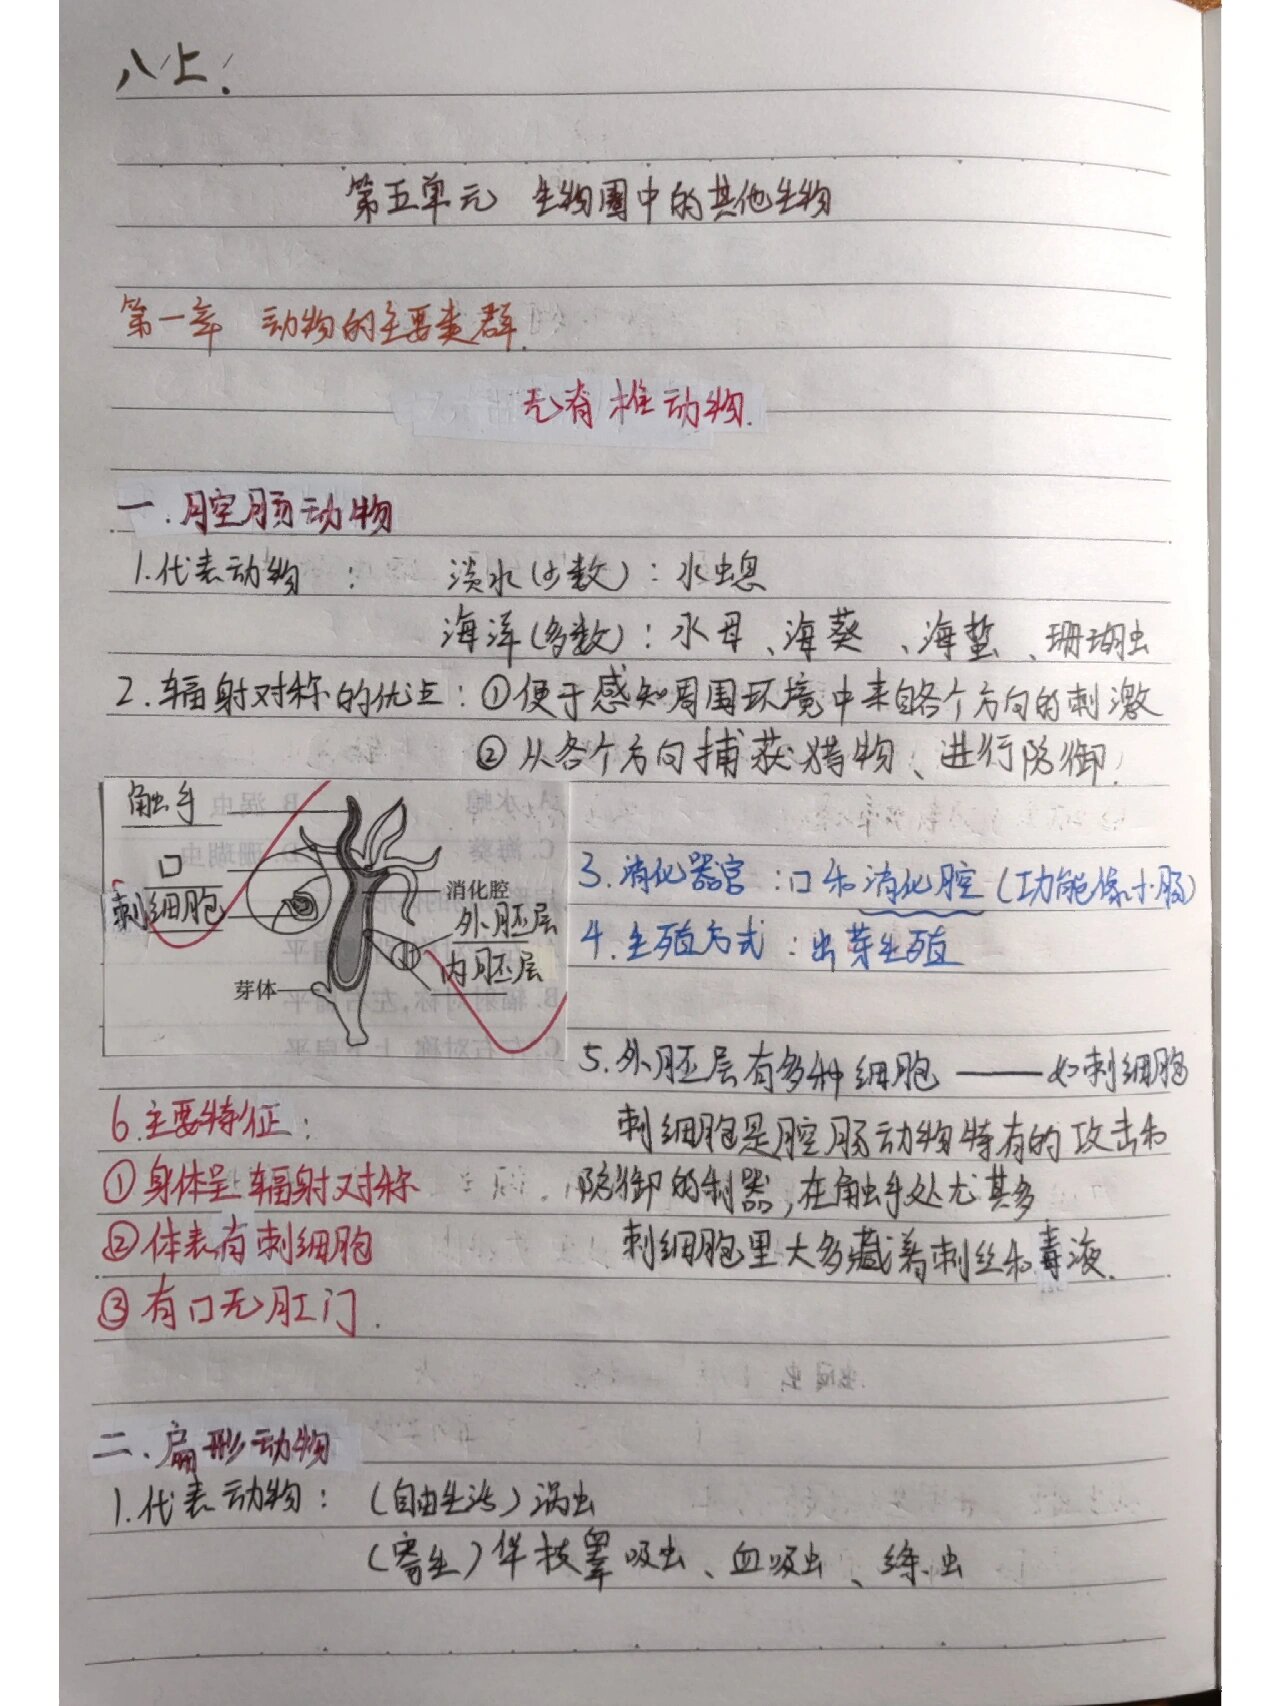 八上.
第五单元 生物圈中的其他生物
第一章 动物的主要类群.
无脊椎动物.
一.腔肠动物
1.代表动物: 淡水(少数):水螅
海洋(多数):水母、海葵、海蜇、珊瑚虫
2.辐射对称的优点:①便于感知周围环境中来自各个方向的刺激
②从各个方向捕获猎物、进行防御.
触手
口
刺细胞
消化腔
外胚层
内胚层
芽体
3.消化器官:口和消化腔(功能像小肠)
4.生殖方式:出芽生殖
5.外胚层有多种细胞——如刺细胞
刺细胞是腔肠动物特有的攻击和
防御的利器,在触手处尤其多
刺细胞里大多藏着刺丝和毒液.
6.主要特征:
①身体呈辐射对称
②体表有刺细胞
③有口无肛门.
二.扁形动物
1.代表动物:(自由生活)涡虫
(寄生)华枝睾吸虫、血吸虫、绦虫